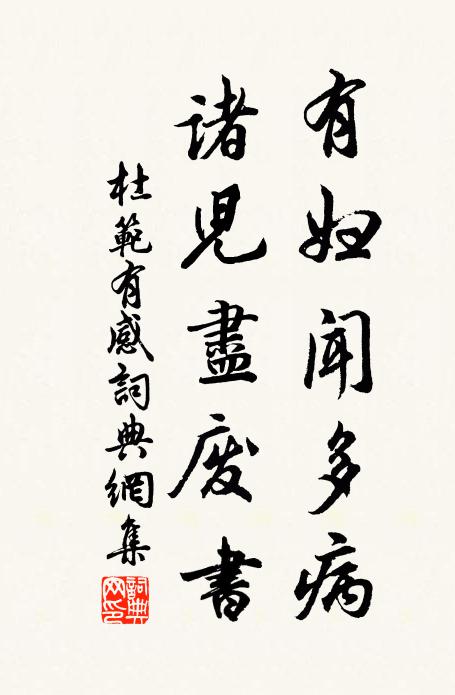 有妇闻多病
诸儿盡废書
杜範有感詞典網集
詞典网印